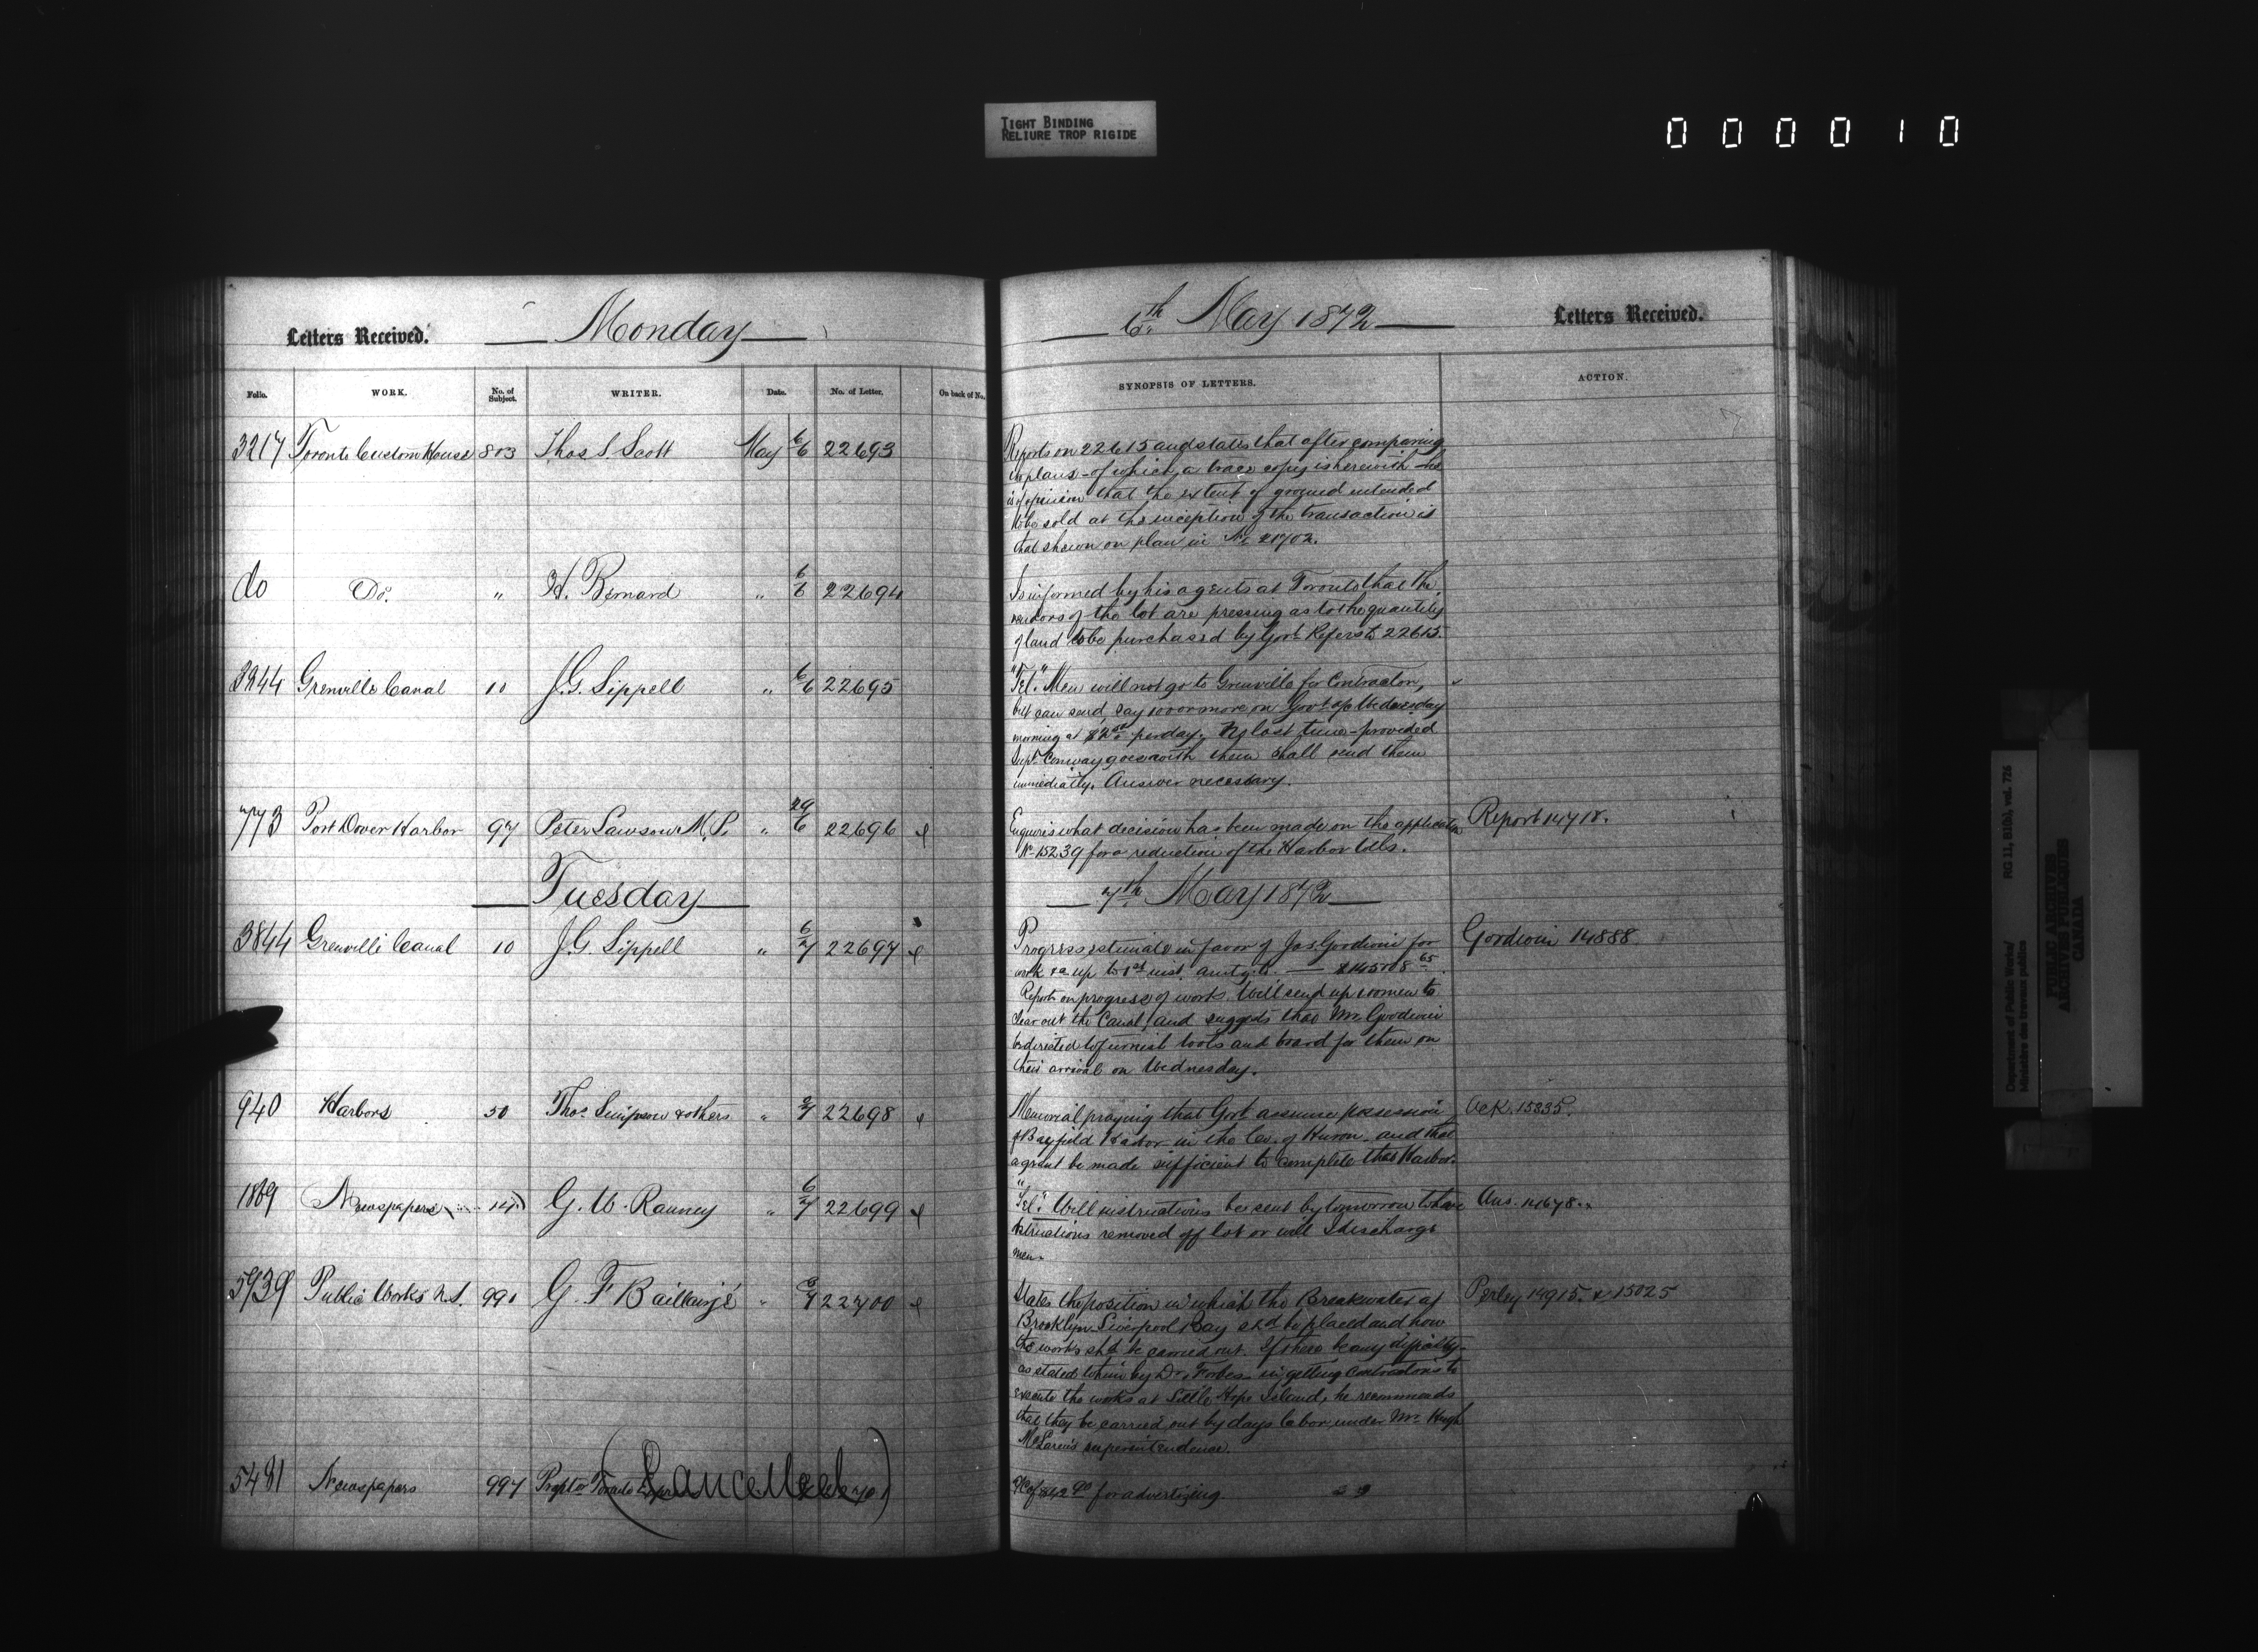 TIGHT BINDING
RELIURE TROP RIGIDE
000010
Letters Received.
Monday
6th May 1872
Letters Received.
Folio.
WORK.
No. of Subject.
WRITER.
Date.
No. of Letter.
On back of No.
SYNOPSIS OF LETTERS.
ACTION.
3217 Toronto Custom House 803 Thos. S. Scott May 6/6 22693
Reports on 22615 and states that after comparing
the plans - of which a trace copy is herewith - he
is of opinion that the extent of ground intended
to be sold at the inception of the transaction is
that shewn on plan in No. 21702.
do Do. " H. Bernard " 6/6 22694
Is informed by his agents at Toronto that the
vendors of the lot are pressing as to the quantity
of land to be purchased by Govt. Refers to 22615.
3844 Grenville Canal 10 J.G. Sippell " 6/6 22695
"Tel." Men will not go to Grenville for Contractor,
but can send, say 100 or more on Govt a/c Wednesday
morning at per day. No lost time - provided
Supt. Conway goes with them shall send them
immediatly. Answer necessary.
773 Port Dover Harbor 97 Peter Lawson M.P. " 29/6 22696
Enquires what decision has been made on the application
No. 15239 for a reduction of the Harbor tolls.
Report 14718.
Tuesday
7th May 1872
3844 Grenville Canal 10 J.G. Sippell " 6/7 22697
Progress estimate in favor of Jas. Goodwin for
work &a up to 1st inst. amtg. to
Reports on progress of work. Will send up 100 men to
clear out the Canal, and suggests that Mr. Goodwin
be directed to furnish tools and board for them on
their arrival on Wednesday.
Goodwin 14888
940 Harbors 50 Thos. Simpson & others " 22698
Memorial praying that Govt. assume possession
of Bayfield Harbor in the Co. of Huron and that
a grant be made sufficient to complete that Harbor.
Ack. 15235.
1869 Newspapers 14 G. W. Ranney " 6/7 22699
"Tel." Will instructions be sent by tomorrow to have
obstructions removed off lot or will I discharge
men.
Ans. 14678.
5939 Public Works N.S. 991 G. F. Baillairgé " 22700
States the position in which the Breakwater at
Brooklyn Liverpool Bay shd. be placed and how
the works shd. be carried out. If there be any difficulty
as stated to him by Dr. Forbes in getting Contractors to
execute the works at Little Hope Island, he recommends
that they be carried out by days labor under Mr. Hugh
McLaren's superintendence.
Perley 14915 & 15025
5481 Newspapers 997 Proptor Toronto (Cancelled)
a/c of for advertizing.
Department of Public Works/
Ministère des travaux publics
RG 11, B1(b), vol. 726
PUBLIC ARCHIVES
ARCHIVES PUBLIQUES
CANADA